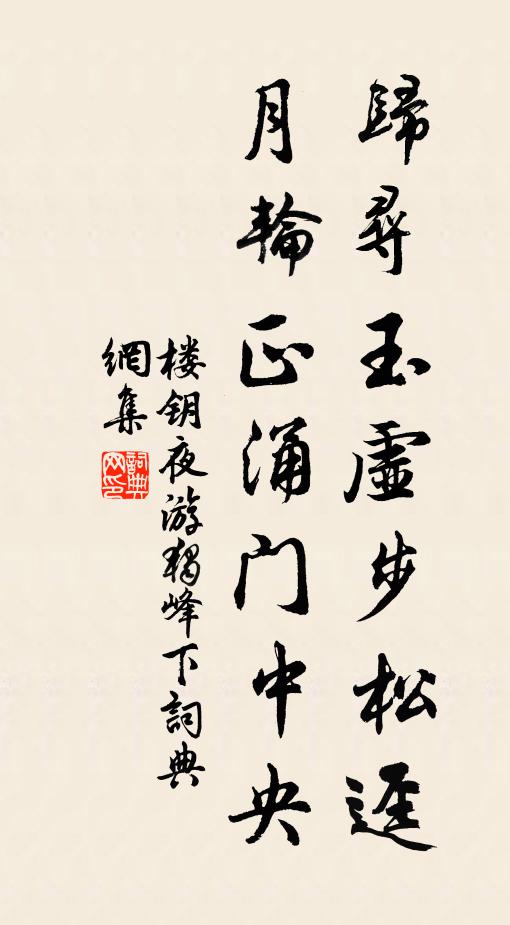 歸尋玉虛步松逕
月輪正涌門中央
楼钥夜游獨峰下詞典
網集
詞典網印